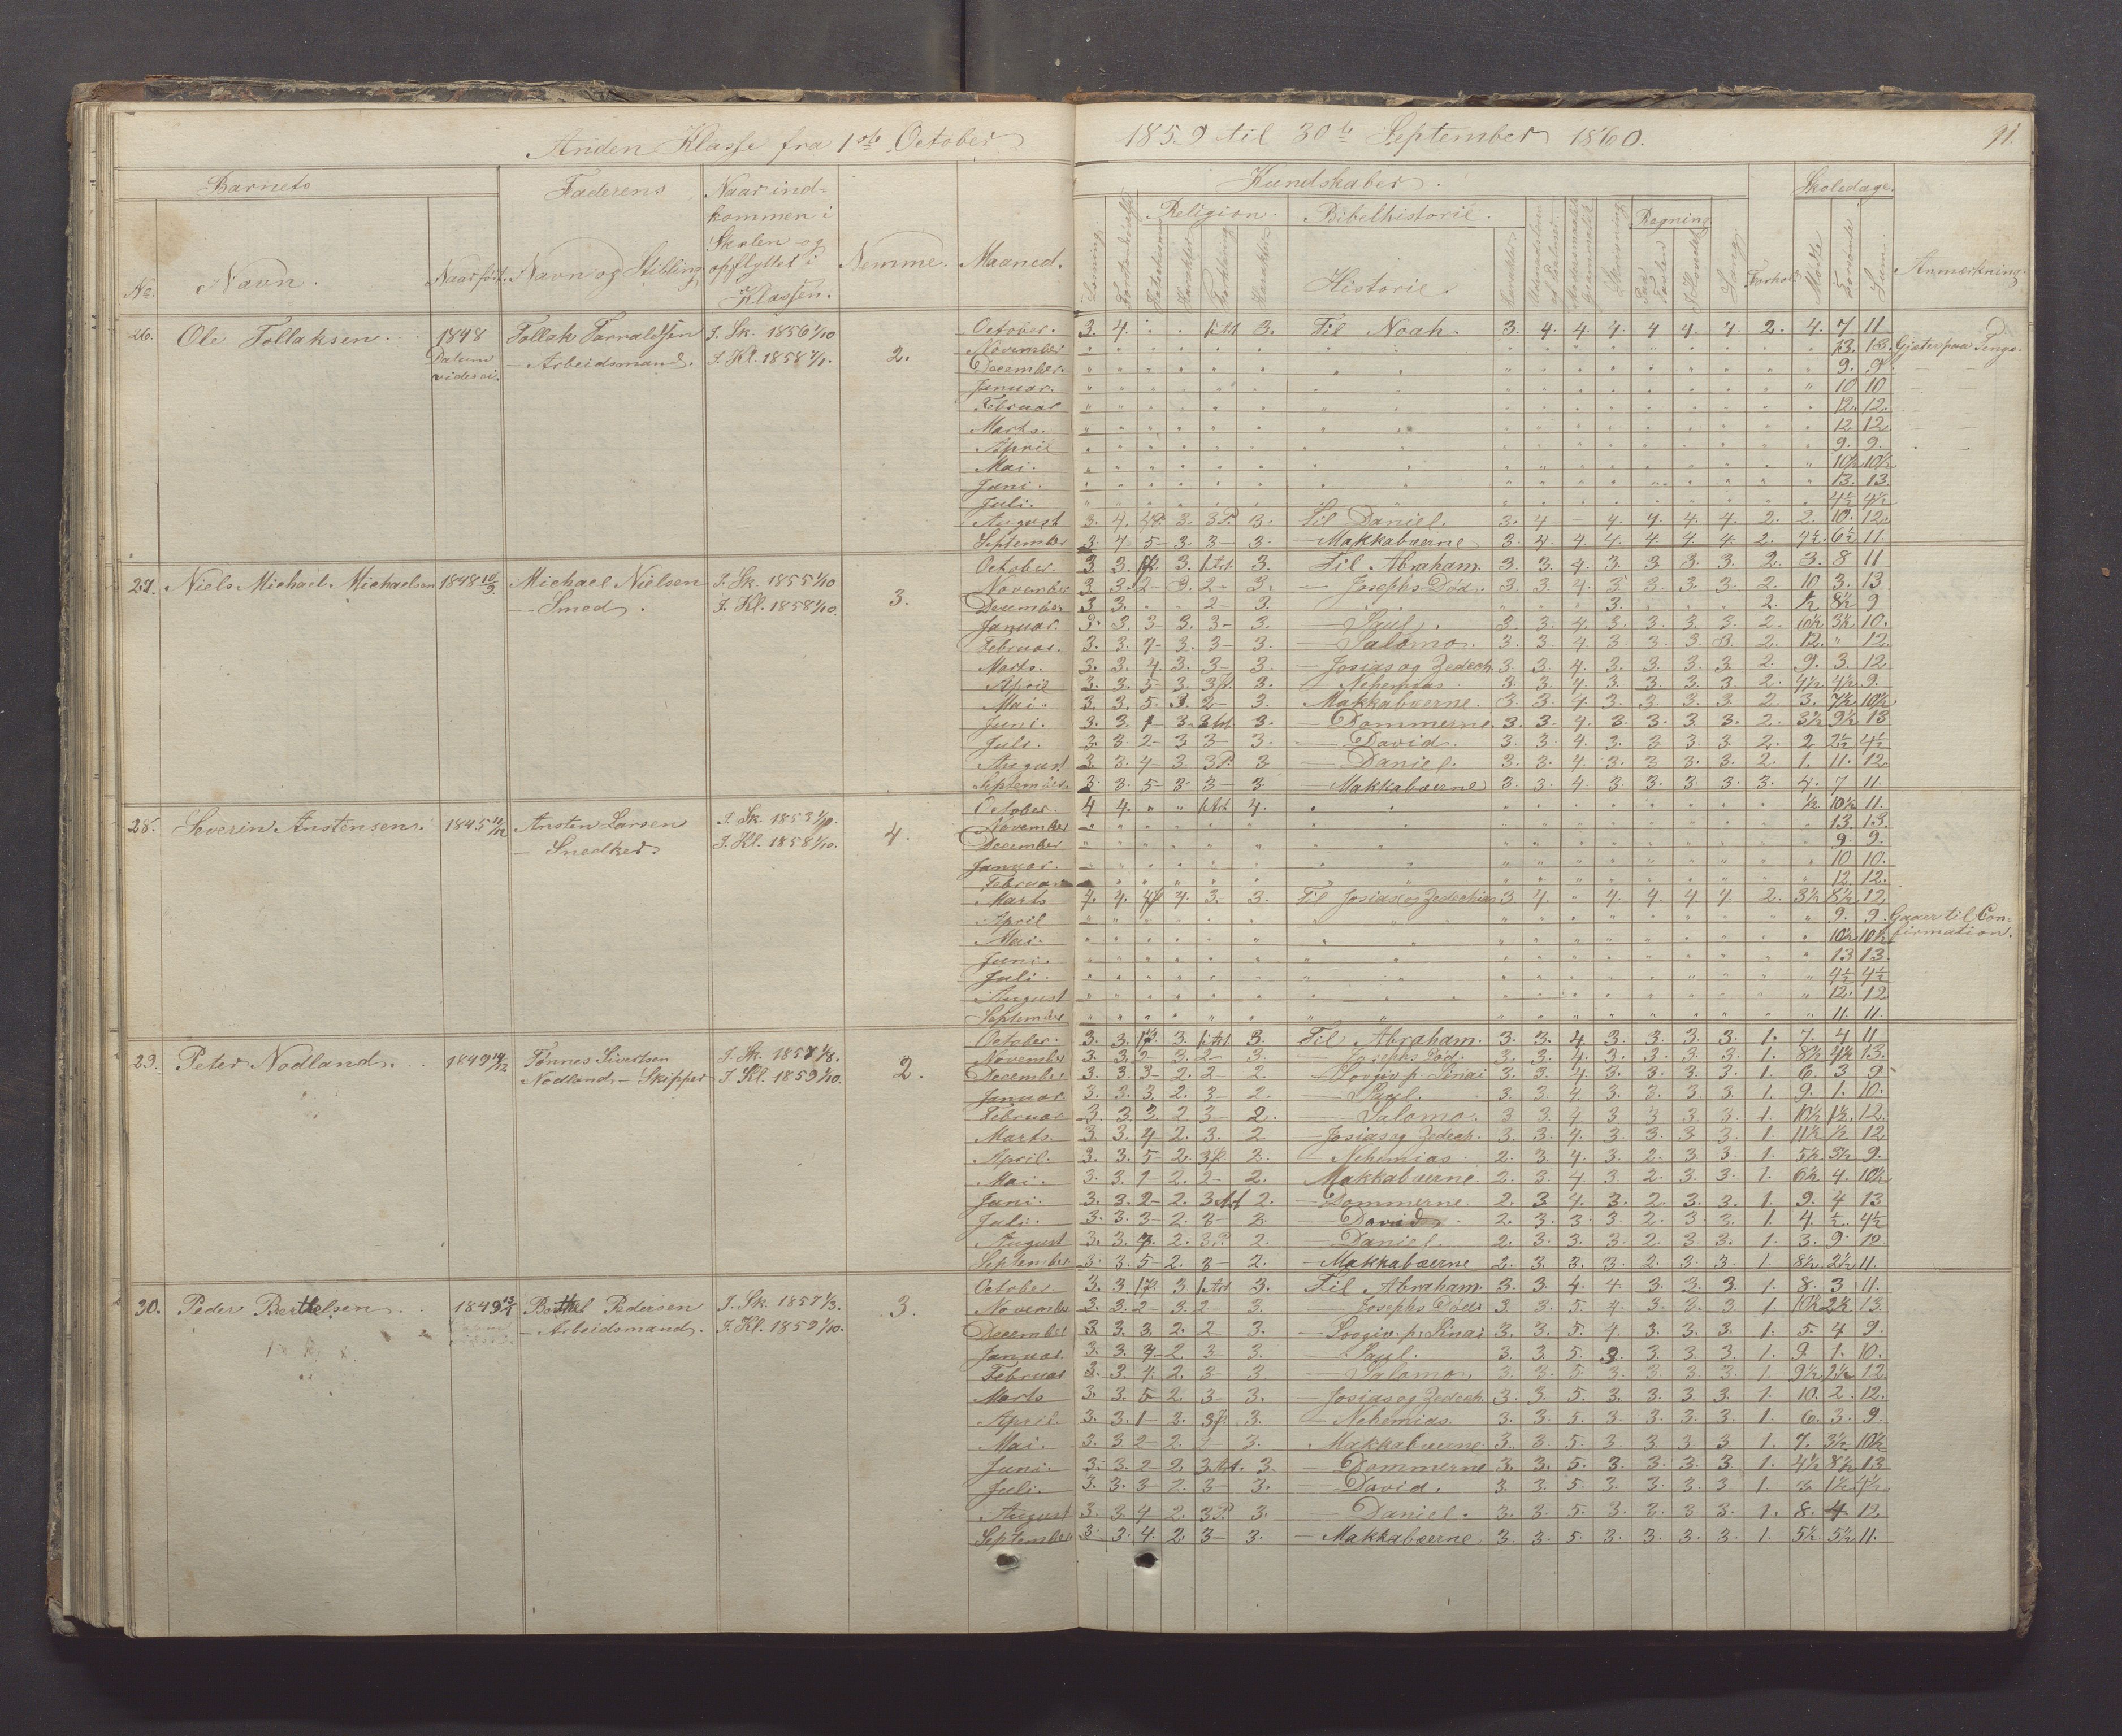 Anden Klasse fra 1ste October 1859 til 30te September 1860. 91.
Barnets Faderens Naar ind- Nemme. Maaned. Kundskaber. Skoledage. Anmærkning.
kommen i Religion. Bibelhistorie. Regning
Skolen og
No. Navn. Naar født. Navn og Stilling opflyttet i Historie. Forhold Mødte Sum.
Klassen.
26. Ole Tollaksen 1848 Tollak Torraldsen I. Sk. 1856 1/10 2. October. 3. 4. 3. Til Noah. 3. 4. 4. 4. 4 4. 4. 2. 4. 7 11
Datum — Arbeidsmand. I. Kl. 1858 November 13. 13. Gjæter paa Tengs.
vides ei. December. 9. 9.
Januar. 10 10
Februar 12. 12.
Marts. 12 12
April 9. 9.
Mai. 10½ 10½
Juni. 13. 13.
Juli. 4½ 4½
August 3. 4. 3. 3. Til Daniel. 3. 4 — 4. 4. 4. 4. 2. 2. 10. 12.
September 3. 4 5 — 3. 3 — 3. — Makkabæerne 3. 4. 4. 4. 4. 4. 4. 2. 4½ 6½ 11.
27. Niels Michael Michaelsen 1848 10/3 Michael Nielsen I. Sk. 1855 1/10 3. October. 3. 3. 3. 3. Til Abraham. 3. 3. 4. 3. 3. 3. 3. 2. 3. 8 11
— Smed. I. Kl. 1858 1/10. November 3 3. 2 — 3. 2 — 3. — Josephs Død. 3. 3 4. 3 3. 3. 3. 2. 10 3. 13
December 3 3. 2 — 3. 3. 2. ½ 8½ 9
Januar. 3. 3. 3 — 3. 3 — 3. — Saul. 3. 3 4. 3. 3. 3. 3. 2. 6½ 3½ 10.
Februar. 3. 3. 3. 3 — 3. — Salomo. 3. 3. 4. 3 3. 3 3. 2. 12. " 12
Marts. 3. 3. 4. 3. 3 — 3. — Josias og Zedech. 3. 3. 4. 3. 3. 3. 3. 2. 9. 3. 12
April 3. 3. 5 — 3. 3. — Nehemias 3. 3. 4. 3. 3. 3. 3. 2. 4½ 4½ 9.
Mai. 3. 3. 5. 3. 2 — 3. Makkabæerne. 3. 3. 4. 3. 3. 3. 3. 2. 3. 7½ 10½
Juni. 3. 3. 3. 3. — Dommerne. 3. 3. 4. 3. 3. 3. 3. 2. 3½ 9½ 13
Juli. 3 3. 2 — 3 3 — 3. — David. 3. 3. 4. 3. 3 3. 3. 2. 2 2½ 4½
August 3. 3. 4 — 3. 3 — Daniel. 3. 3. 4. 3. 3. 3. 3. 2. 1. 11. 12
September 3. 3. 5 — 3. 3 — 3. — Makkabæerne 3. 3. 4. 3. 3. 3. 3. 3. 4. 7 11.
28. Severin Anstensen. 1845 Ansten Larsen I. Sk. 1853 1/10. 4. October. 4 4. 4. ½ 10½ 11.
— Snedker. I. Kl. 1858 1/10. November 13. 13.
December 9. 9.
Januar. 10 10.
Februar 12. 12.
Marts 4. 4. 4. 3. 3. Til Josias og Zedechias 3 4. 4. 4. 4 4. 2. 3½ 8½ 12
April 9. 9. Gaaer til Con-
Mai. 10½ 10½ firmation.
Juni. 13 13.
Juli. 4½ 4½
August 12. 12
September 11. 11.
29. Peter Nodland. 1849 Tønnes Sivertsen I. Sk. 1857 1/8. 2. October. 3. 3. 3. 3. Til Abraham. 3. 3. 4. 3. 3. 3. 3. 1. 7. 4 11
Nodland, — Skipper I. Kl. 1859 1/10. November 3. 3. 2 — 3. 2 — 3. — Josephs Død. 3. 3. 4. 3. 3. 3. 3. 1. 8½ 4½ 13.
December 3. 3. 3 — 2. 2 — 2. — Lovgiv. p. Sinai 3. 3. 4. 3. 3. 3. 3. 1. 6. 3. 9
Januar. 3. 3. 3. 2. 3 — 2. — Saul. 3. 3. 4. 3 3. 3. 3. 1. 9. 1. 10.
Februar 3. 3. 3. 2 3 — 2. — Salomo. 3 3 4 3 3 3. 3. 1. 10½ 1½ 12
Marts. 3. 3. 4 — 2. 3. 2 — Josias og Zedech. 3. 3. 4. 3. 3. 3 3. 1. 11½ ½ 12
April. 3. 3. 5 — 2. 2. — Nehemias 2. 3 4. 3. 2. 3. 3. 1. 5½ 3½ 9.
Mai. 3. 3. 1 — 2. 2 — 2. Makkabæerne. 2. 3. 4. 3. 2. 3. 3. 1. 6½ 4. 10½
Juni. 3. 3. 2 — 2. 2. — Dommerne 2. 3 4. 3. 2. 3. 3. 1. 9. 4 13
Juli. 3. 3. 3 — 2. 3 — 2. — David. 2. 3. 3. 3 2. 3. 3. 1. 4. ½. 4½
August 3. 3. 2. 2. — Daniel. 2. 3. 3. 3. 2 3. 3. 1. 3. 9
September 3. 3. 5 2. 3 — 2. — Makkabæerne 2. 3. 3. 3. 2. 3. 3. 1. 8½. 2½ 11.
30. Peder Berthelsen 1849 Berthel Pedersen I. Sk. 1857 1/3. 3. October. 3. 3 3 3. Til Abraham. 3. 3 4. 4. 3 3. 3 1. 8. 3 11.
— Arbeidsmand. I. Kl. 1859 1/10. November 3. 3. 2 — 3. 2 — 3. — Josephs Død. 3 3. 5. 4. 3. 3. 3 1 10½ 2½ 13.
December 3 3. 3. 2. 2 3. — Lovgiv. p. Sinai 3. 3. 5. 4. 3. 3. 3. 1. 5. 4 9.
Januar. 3. 3. 2. 3 — 3. — Saul. 3. 3 5 3. 3. 3. 3. 1. 9. 1. 10.
Februar 3. 3. 4. 2. 3 — 3. — Salomo. 3. 3. 5. 3. 3. 3. 3. 1. 9½ 2½ 12
Marts 3. 3. 5 — 2 3 — 3. — Josias og Zedech. 3. 3. 5. 3. 3. 3. 3. 1. 10. 2. 12.
April. 3. 3. 1 — 2. 3. — Nehemias. 3. 3. 5. 3. 3. 3. 3. 1. 6. 3. 9.
Mai. 3. 3 2 — 2. 2 — 3. Makkabæerne. 3. 3. 5. 3. 3. 3. 3 1. 7. 3½ 10½
Juni. 3. 3. 2 — 2. 3. — Dommerne 3. 3. 5. 3. 3. 3. 3. 1. 4½ 8½ 13
Juli. 3. 3. 3 — 2. 3 — 3. — David. 3. 3. 5. 3. 3. 3. 3 1. 3 1½ 4½
August 3. 3. 4 — 2. 3. — Daniel. 3. 3. 5. 3. 3. 3. 3. 1. 8. 4 12
September 3. 3. 4. 2. 3 — 3. — Makkabæerne 3. 3. 5. 3. 3. 3. 3. 1. 5½. 5½ 11.